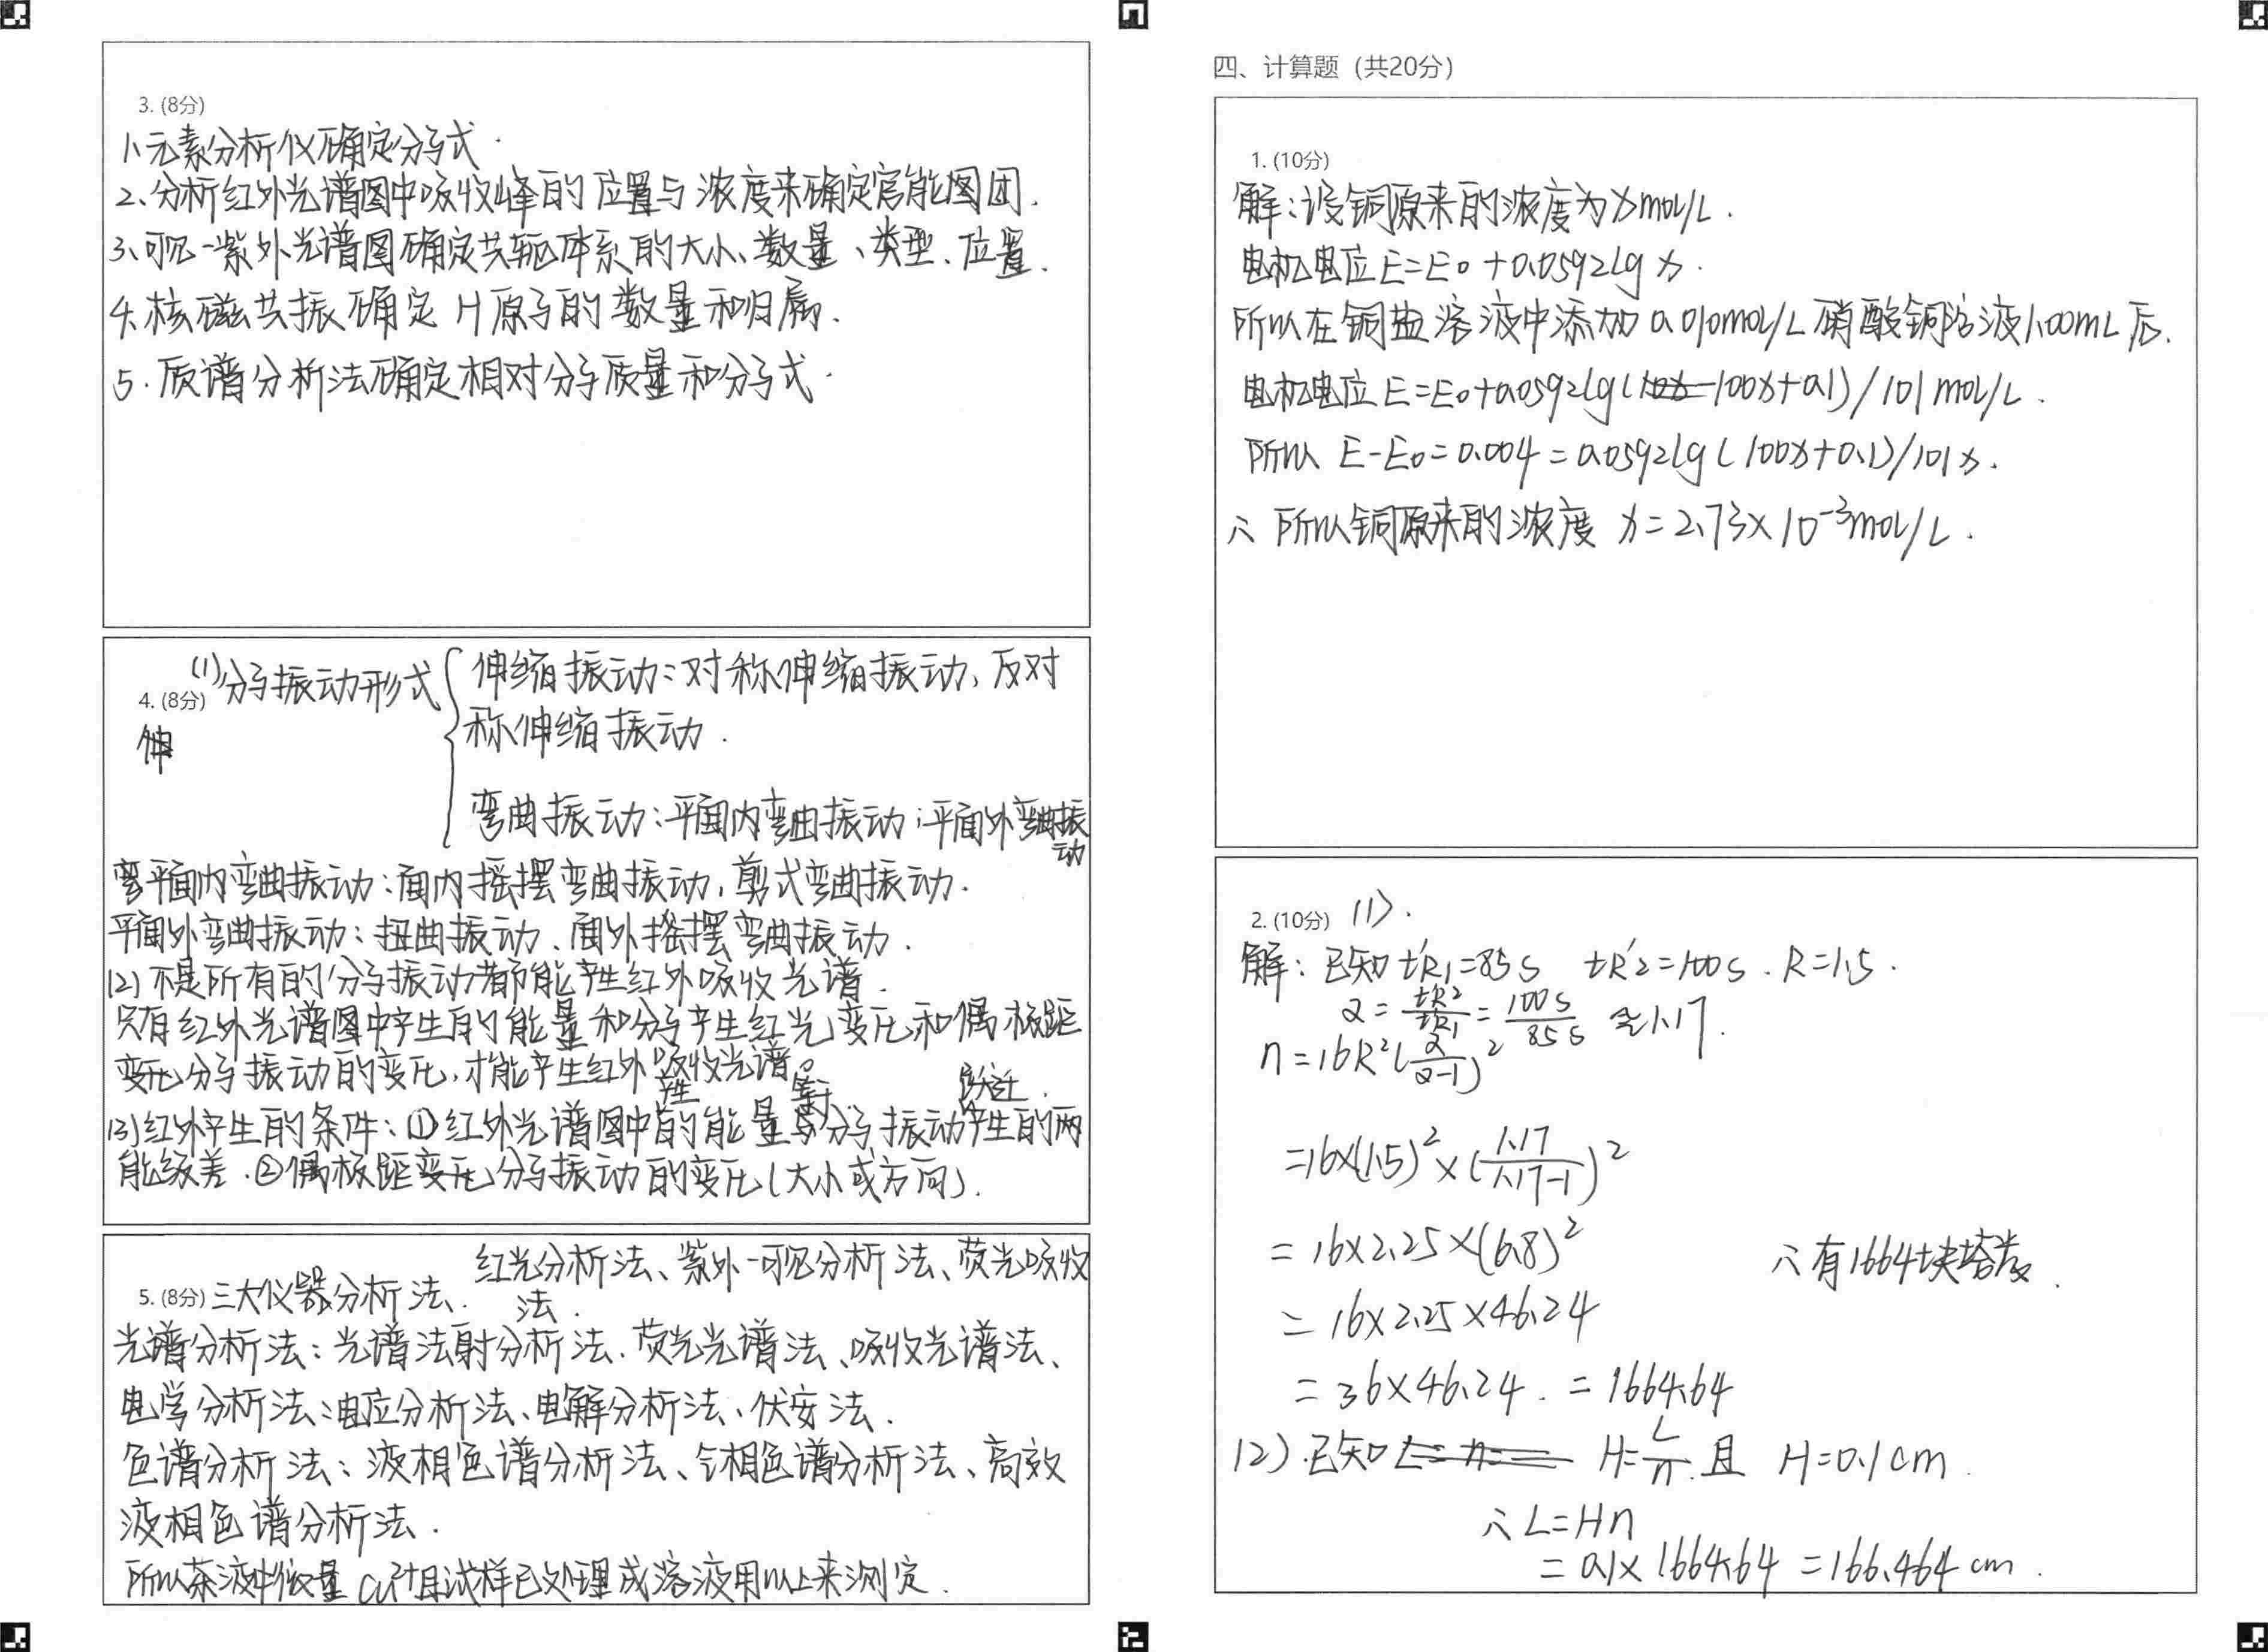 3. (8分)
1、元素分析仪确定分子式.
2、分析红外光谱图中吸收峰的位置与浓度来确定官能图团.
3、可见-紫外光谱图确定共轭体系的大小、数量、类型、位置.
4、核磁共振确定H原子的数量和归属.
5. 质谱分析法确定相对分子质量和分子式.
4. (8分)
(1)分子振动形式
伸缩振动:对称伸缩振动、反对
称伸缩振动.
弯曲振动:平面内弯曲振动;平面外弯曲振
动
平面内弯曲振动:面内摇摆弯曲振动,剪式弯曲振动.
平面外弯曲振动:扭曲振动、面外摇摆弯曲振动.
(2)不是所有的分子振动都能产生红外吸收光谱.
只有红外光谱图中产生的能量和分子产生红光变化和偶极距
变化分子振动的变化,才能产生红外吸收光谱。
(3)红外产生的条件:①红外光谱图中的能量与分子振动产生的两
能级差.②偶极距变化分子振动的变化(大小或方向).
5. (8分)三大仪器分析法.
红光分析法、紫外-可见分析法、荧光吸收
法.
光谱分析法:光谱法射分析法、荧光光谱法、吸收光谱法、
电学分析法:电位分析法、电解分析法、伏安法.
色谱分析法:液相色谱分析法、气相色谱分析法、高效
液相色谱分析法.
所以茶液中微量 且试样已处理成溶液用以上来测定.
四、计算题(共20分)
1. (10分)
解:设铜原来的浓度为x mol/L.
电机电位E=E0+0.0592lg x.
所以在铜盐溶液中添加0.010mol/L硝酸铜溶液1.00mL后.
电机电位E=E0+0.0592lg(100x+0.1)/101 mol/L.
所以 E-E0=0.004=0.0592lg(100x+0.1)/101x.
∴ 所以铜原来的浓度 x=2.73×10⁻³mol/L.
2. (10分) (1).
解:已知t'R1=85s t'R2=100s. R=1.5.
α=t'R2/t'R1=100s/85s≌1.17.
n=16R²(α/(α-1))²
=16×(1.5)²×(1.17/(1.17-1))²
=16×2.25×(6.8)²
∴有1664块塔板.
=16×2.25×46.24
=36×46.24.=1664.64
(2).已知 H=L/n.且 H=0.1cm.
∴L=Hn
=0.1×1664.64=166.464cm.